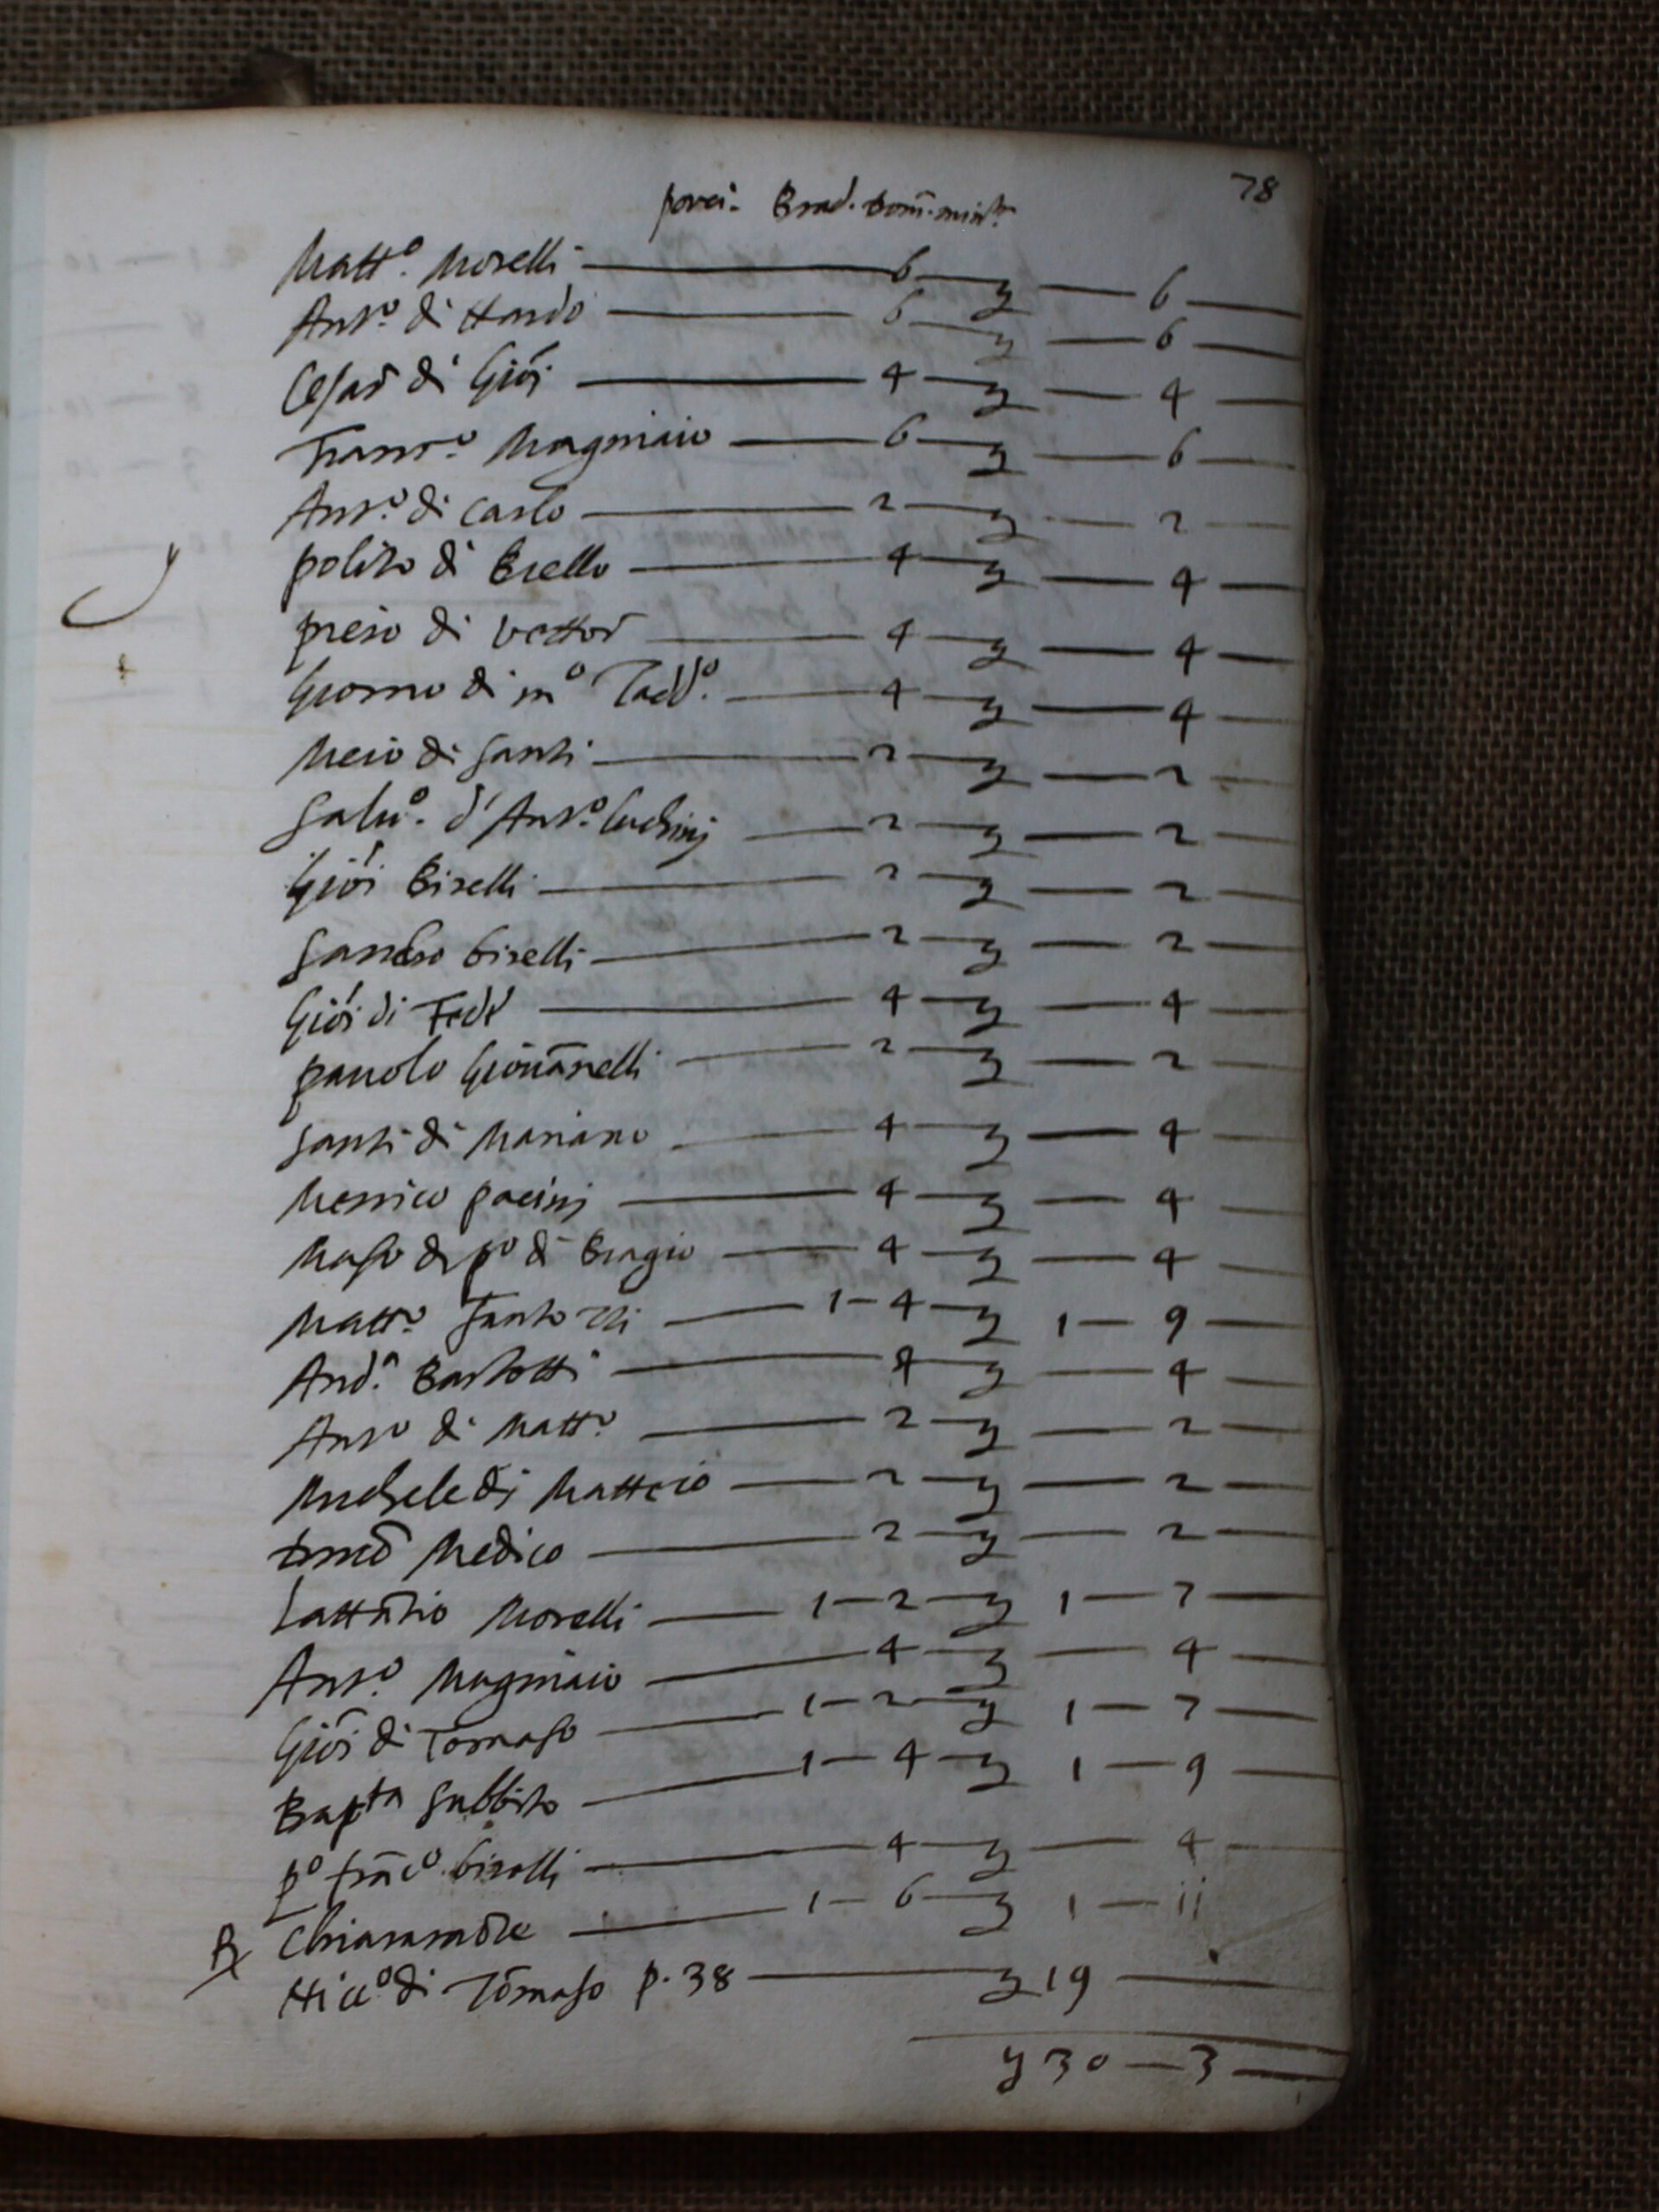 78
porci. Brad. Dom. minr.
Matt.º Morelli — 6 — ꝫ — 6 —
Ant.º di Nardo — 6 — ꝫ — 6 —
Cesar di Giōi — 4 — ꝫ — 4 —
Franc.º Magniaio — 6 — ꝫ — 6 —
Ant.º di Carlo — 2 — ꝫ — 2 —
polito di Brello — 4 — ꝫ — 4 —
piero di vettor — 4 — ꝫ — 4 —
Giomo di mº Tadd.º — 4 — ꝫ — 4 —
Meio di Santi — 2 — ꝫ — 2
Salu.º d'Ant.º luchinj — 2 — ꝫ — 2 —
Giōi Birelli — 2 — ꝫ — 2 —
Sandro birelli — 2 — ꝫ — 2 —
Giōi di Fed.º — 4 — ꝫ — 4 —
pauolo Giouānelli — 2 — ꝫ — 2 —
Santi di Mariano — 4 — ꝫ — 4 —
Menico pacinj — 4 — ꝫ — 4 —
Maso di pº di Biagio — 4 — ꝫ — 4 —
Matt.º Santozzi — 1 — 4 — ꝫ 1 — 9 —
And.ª Bartotti — 4 — ꝫ — 4 —
Antº di Matt.º — 2 — ꝫ — 2 —
Michele di Matteio — 2 — ꝫ — 2 —
Medico — 2 — ꝫ — 2 —
Lattātio Morelli — 1 — 2 — ꝫ 1 — 7 —
Ant.º Magniaio — 4 — ꝫ — 4 —
Giōi di Tomaso — 1 — 2 — ꝫ 1 — 7 —
Bapta Subbito — 1 — 4 — ꝫ 1 — 9 —
pº frācº birelli — 4 — ꝫ — 4 —
Chiaramōte — 1 — 6 — ꝫ 1 — ii
Niccº di Tōmaso p. 38 — ꝫ 19 —
ꝫ 30 — 3 —